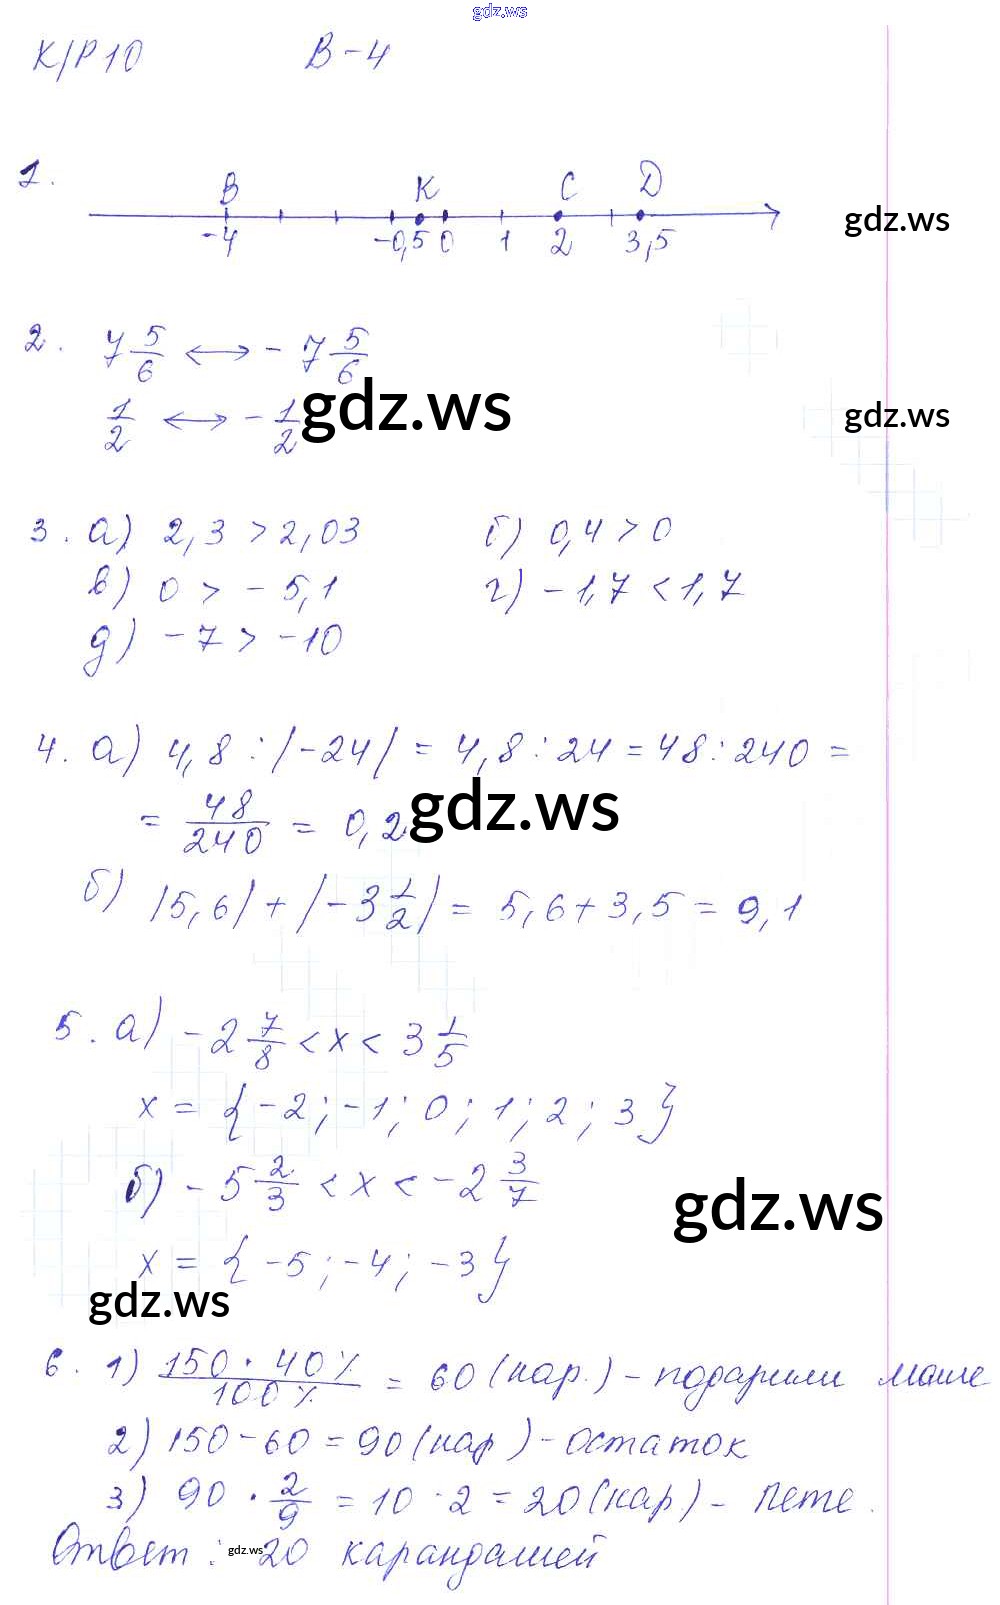 gdz.ws
К/Р 10 В-4
1. B K C D
-4 -0,5 0 1 2 3,5
gdz.ws
2. 7 5/6 ↔ -7 5/6
1/2 ↔ -1/2
gdz.ws
gdz.ws
3. а) 2,3 > 2,03 б) 0,4 > 0
в) 0 > -5,1 г) -1,7 < 1,7
д) -7 > -10
4. а) 4,8 : |-24| = 4,8 : 24 = 48 : 240 =
= 48/240 = 0,2
gdz.ws
б) |5,6| + |-3 1/2| = 5,6 + 3,5 = 9,1
5. а) -2 7/8 < x < 3 1/5
x = {-2; -1; 0; 1; 2; 3}
б) -5 2/3 < x < -2 3/7
gdz.ws
x = {-5; -4; -3}
gdz.ws
6. 1) 150 · 40% / 100% = 60 (кар.) - подарили Маше
2) 150 - 60 = 90 (кар) - остаток
3) 90 · 2/9 = 10 · 2 = 20 (кар.) - Пете.
Ответ: 20 карандашей
gdz.ws